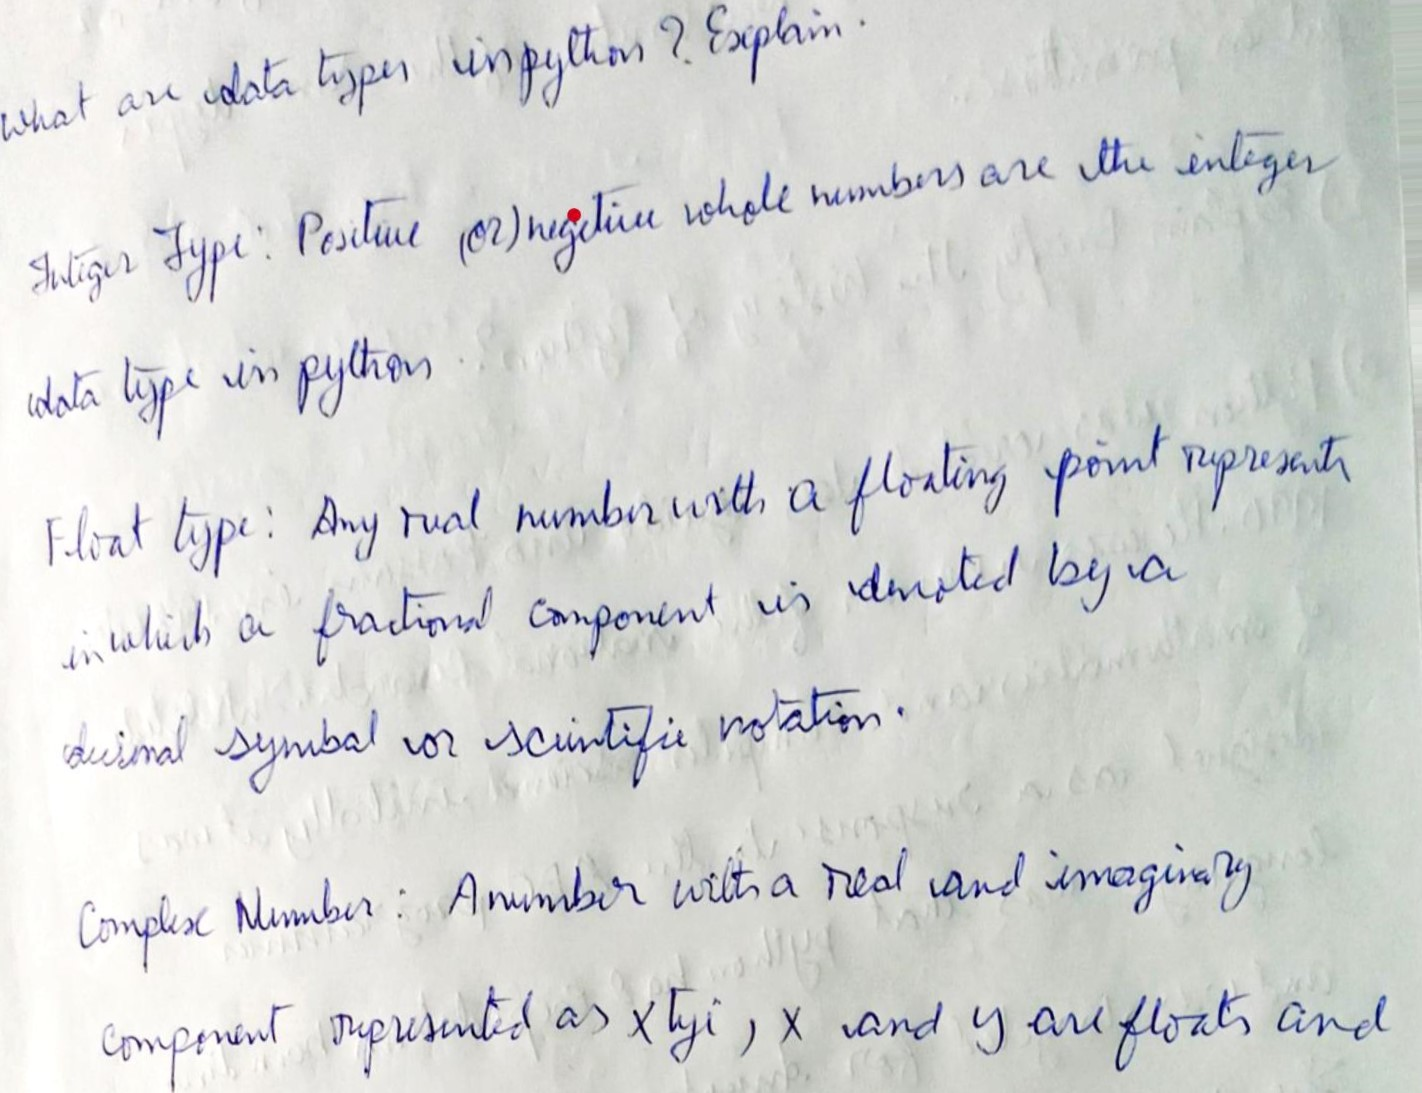 What are data types in python? Explain.
Integer Type: Positive (or) negetive whole numbers are the integer
data type in python.
Float type: Any real number with a floating point represents
in which a fractional component is denoted by a
decimal symbol or scientific notation.
Complex Number: A number with a real and imaginary
component represented as x+yi, x and y are floats and